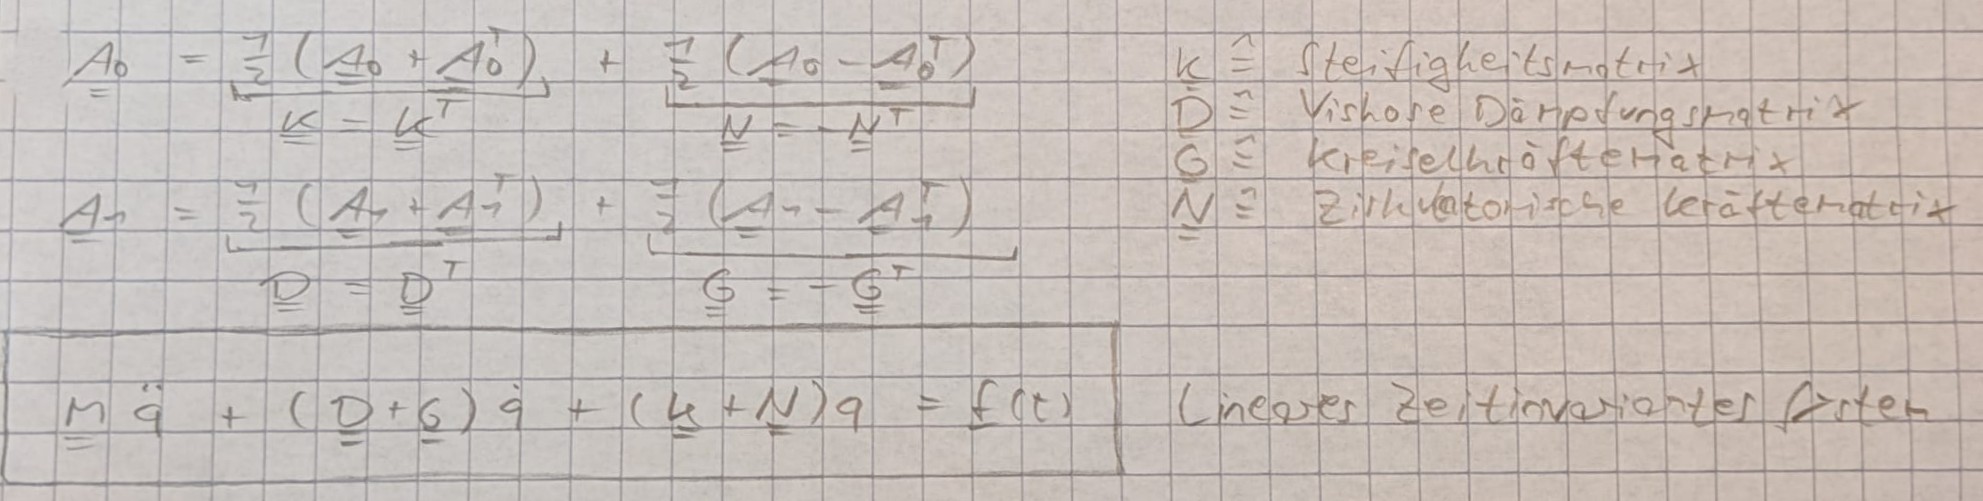 A₀ = ½ (A₀ + A₀ᵀ) + ½ (A₀ - A₀ᵀ)
K = Kᵀ   N = -Nᵀ
A₁ = ½ (A₁ + A₁ᵀ) + ½ (A₁ - A₁ᵀ)
D = Dᵀ   G = -Gᵀ
K ≙ Steifigkeitsmatrix
D ≙ Viskose Dämpfungsmatrix
G ≙ Kreiselkräftematrix
N ≙ Zirkulatorische Kräftematrix
M q̈ + (D + G) q̇ + (K + N) q = f(t)   Lineares Zeitinvariantes System